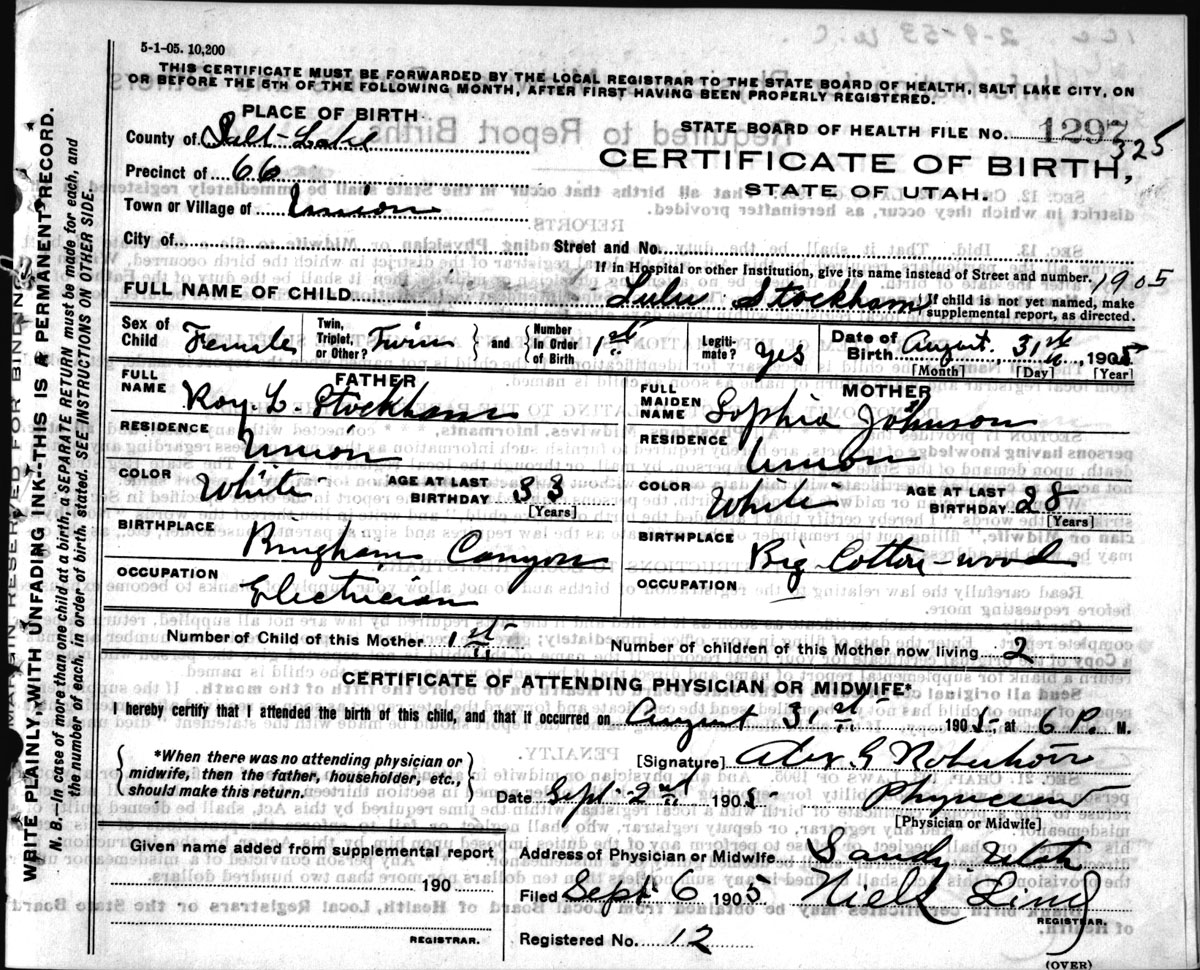 5-1-05. 10,200
THIS CERTIFICATE MUST BE FORWARDED BY THE LOCAL REGISTRAR TO THE STATE BOARD OF HEALTH, SALT LAKE CITY, ON
OR BEFORE THE 5TH OF THE FOLLOWING MONTH, AFTER FIRST HAVING BEEN PROPERLY REGISTERED.
PLACE OF BIRTH
County of Salt-Lake
Precinct of 66
Town or Village of Union
City of
STATE BOARD OF HEALTH FILE No. 1297
325
CERTIFICATE OF BIRTH,
STATE OF UTAH.
Street and No.
If in Hospital or other Institution, give its name instead of Street and number.
1905
FULL NAME OF CHILD Lulu Stockham
If child is not yet named, make
supplemental report, as directed.
Sex of Child Female
Twin, Triplet, or Other? Twin
and
Number in Order of Birth 1st
Legiti-mate? yes
Date of Birth August 31st, 1905
[Month] [Day] [Year]
FATHER
FULL NAME Roy L. Stockham
RESIDENCE Union
COLOR White
AGE AT LAST BIRTHDAY 33
[Years]
BIRTHPLACE Bingham Canyon
OCCUPATION Electrician
MOTHER
FULL MAIDEN NAME Sophia Johnson
RESIDENCE Union
COLOR White
AGE AT LAST BIRTHDAY 28
[Years]
BIRTHPLACE Big Cotton-wood
OCCUPATION
Number of Child of this Mother 1st
Number of children of this Mother now living 2
CERTIFICATE OF ATTENDING PHYSICIAN OR MIDWIFE*
I hereby certify that I attended the birth of this child, and that it occurred on August 31st 1905 at 6 P. M.
*When there was no attending physician or
midwife, then the father, householder, etc.,
should make this return.
[Signature] Alex G Robertson
Date Sept. 2nd 1905
Physician
[Physician or Midwife]
Given name added from supplemental report
190
REGISTRAR.
Address of Physician or Midwife Sandy Utah
Filed Sept 6 1905. Niels Lind
REGISTRAR.
Registered No. 12
(OVER)
MARGIN RESERVED FOR BINDING
WRITE PLAINLY, WITH UNFADING INK--THIS IS A PERMANENT RECORD.
N. B.--In case of more than one child at a birth, a SEPARATE RETURN must be made for each, and
the number of each, in order of birth, stated. SEE INSTRUCTIONS ON OTHER SIDE.